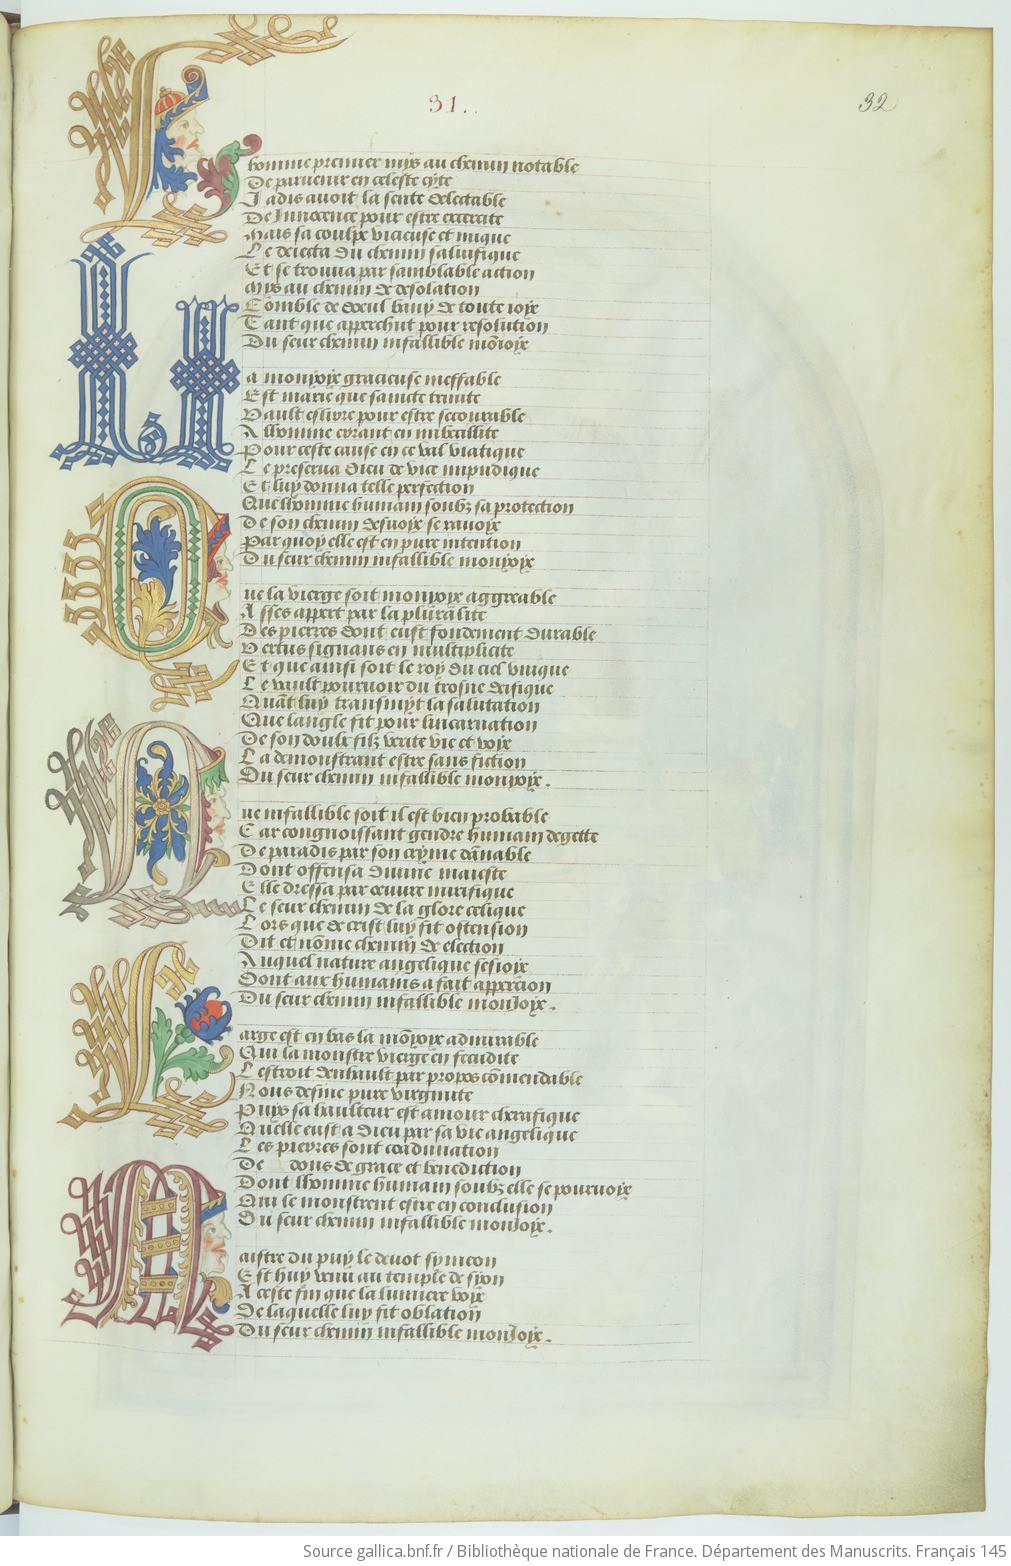 31.
32
Lhomme premier mys au chemin notable
De paruenir en celeste cyte
Jadis auoit la sente delectable
De Innocence pour estre excercite
Mais sa coulpe vicieuse et inique
Le deiecta du chemin saluifique
Et se trouua par samblable action
Mys au chemin de desolation
Comble de doeul bany de toute ioye
Tant que apperchut pour resolution
Du seur chemin infallible mōioye
La monioye gracieuse ineffable
Est marie que saincte trinite
Vault eslire pour estre secourable
A lhomme errant en imbecillite
Pour ceste cause en ce val viatique
Le preserua dieu de vice impudique
Et luy donna telle perfection
Que lhomme humain soubz sa protection
De son chemin desuoye se rauoye
Par quoy elle est en pure intention
Du seur chemin infallible monioye
Que la vierge soit monioye aggreable
Asses appert par la pluralite
Des pierres dont eust fondement durable
Vertus signans en multiplicite
Et que ainsi soit le roy du ciel vnique
Le vault pouruoir du trosne deifique
Quāt luy transmyt la salutation
Que langle fit pour lincarnation
De son doulx filz verite vie et voye
La demonstrant estre sans fiction
Du seur chemin infallible monioye.
Que infallible soit il est bien probable
Car congnoissant gendre humain degette
De paradis par son cryme dānable
Dont offensa diuine maieste
Elle dressa par œuure mirifique
Le seur chemin de la glore celique
Lors que de crist luy fit ostension
Dit et nōme chemin de election
Auquel nature angelique sesioye
Dont aux humains a fait appercion
Du seur chemin infallible monJoye.
Large est en bas la mōioye admirable
Qui la monstre vierge en fecudite
Lestroit denhault par propos cōmendable
Nous desine pure virginite
Puys sa haulteur est amour cherafique
Quelle eust a dieu par sa vie angelique
Les pierres sont coadunation
De dons de grace et benediction
Dont lhomme humain soubz elle se pouruoye
Qui le monstrent estre en conclusion
Du seur chemin infallible monJoye.
Maistre du puy le deuot symeon
Est huy venu au temple de syon
A ceste fin que la lumiere voye
De laquelle luy fit oblation
Du seur chemin infallible monJoye.
Source gallica.bnf.fr / Bibliothèque nationale de France. Département des Manuscrits. Français 145